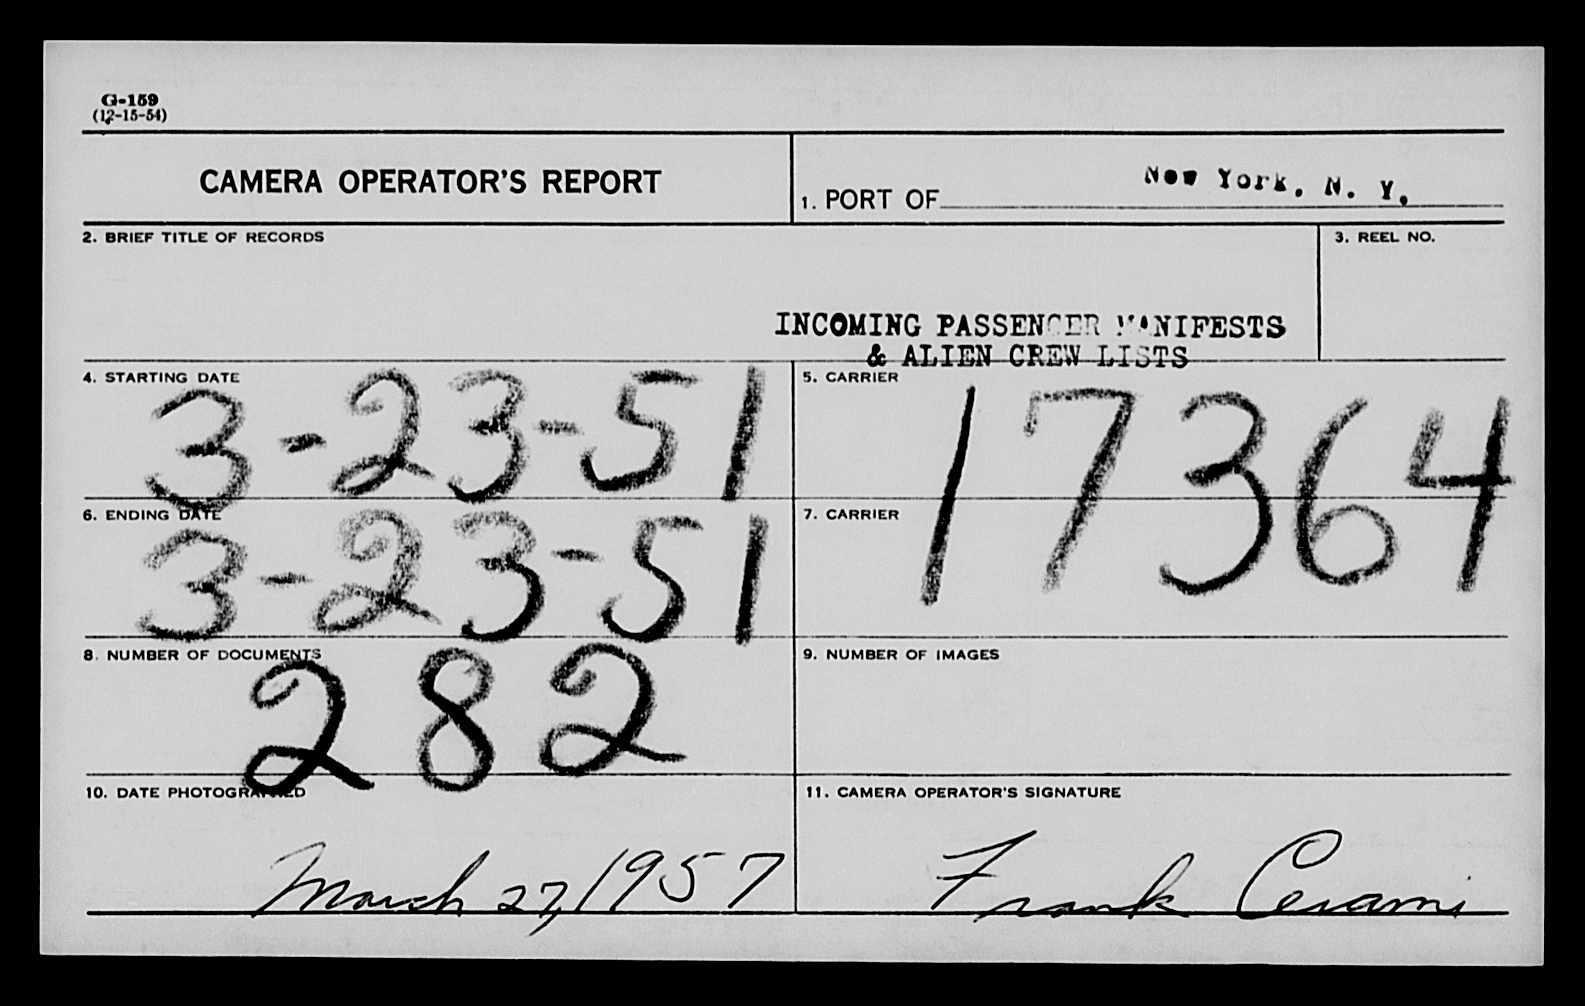 G-159
(12-15-54)
CAMERA OPERATOR'S REPORT
1. PORT OF New York, N. Y.
2. BRIEF TITLE OF RECORDS
3. REEL NO.
INCOMING PASSENGER MANIFESTS
& ALIEN CREW LISTS
4. STARTING DATE
3-23-51
5. CARRIER
17364
6. ENDING DATE
3-23-51
7. CARRIER
8. NUMBER OF DOCUMENTS
282
9. NUMBER OF IMAGES
10. DATE PHOTOGRAPHED
March 27, 1957
11. CAMERA OPERATOR'S SIGNATURE
Frank Cerami